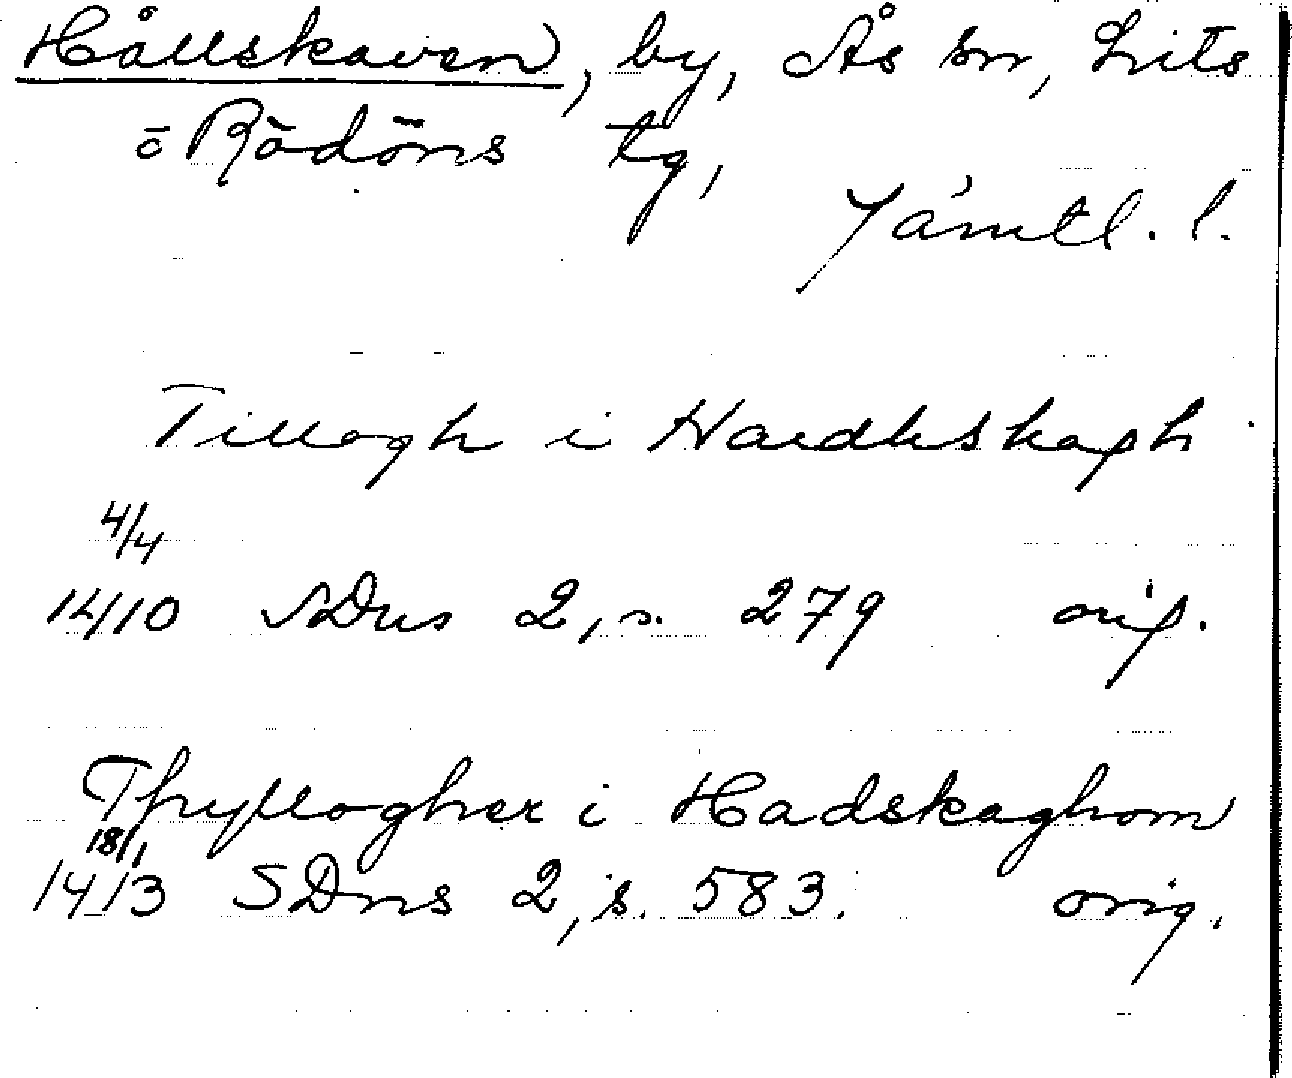 Hållskaven, by, Ås sn, Lits
o Rödöns tg,
Jämtl. l.
Tillogh i Haidhskagh
4/4
1410 SDns 2, s. 279 orig.
Thyllogher i Hadskaghom
18/1
1413 SDns 2, s. 583. orig.